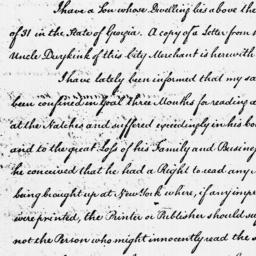 I have a Son whose Dwelling lies above the
of 31 in the State of Georgia. A copy of a Letter from
Uncle Duyckink of this City Merchant is herewith
I have lately been informed that my sa
been confined in Goal three Months for reading a
at the Natches and suffered exceedingly in his bo
and to the great Loss of his Family and Busines
he conceived that he had a Right to read any
being brought up at New York where, if any impro
were printed, the Printer or Publisher should su
not the Person who might innocently read the s